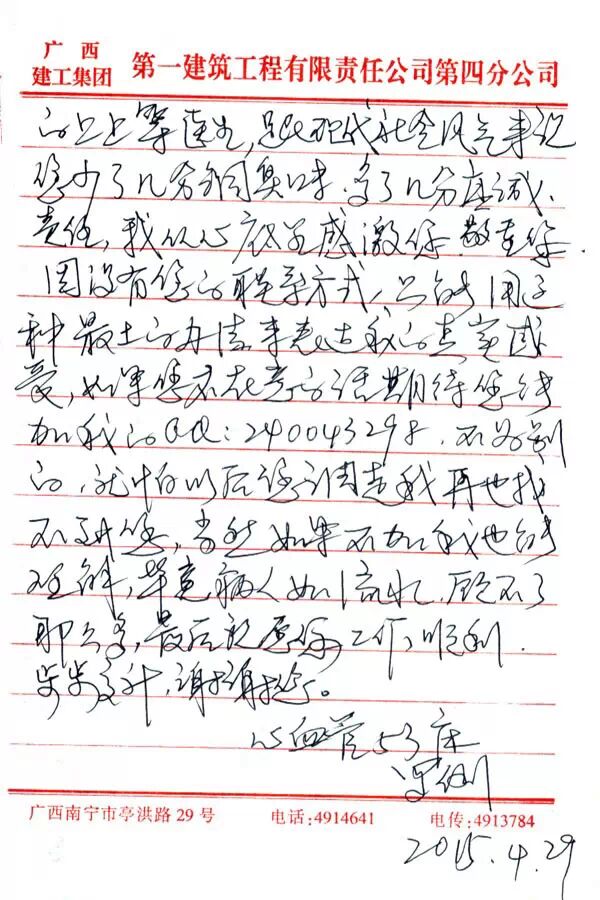 广西
建工集团 第一建筑工程有限责任公司第四分公司
的上上等医生，是比现代社会风气来说
您少了几分铜臭味，多了几分真诚、
责任，我从心底里感激你、敬重你。
因没有您的联系方式，只能用这
种最土的办法来表达我的真实感
受，如果您不在意的话期待您能
加我的QQ：240043298，不为别
的，就怕以后您调走我再也找
不到您，当然如果不加我也能
理解，毕竟病人如流水，顾不了
那么多，最后祝愿您工作顺利，
步步高升，谢谢您。
心血管53床
广西南宁市亭洪路 29 号 电话:4914641 电传:4913784
2015.4.29